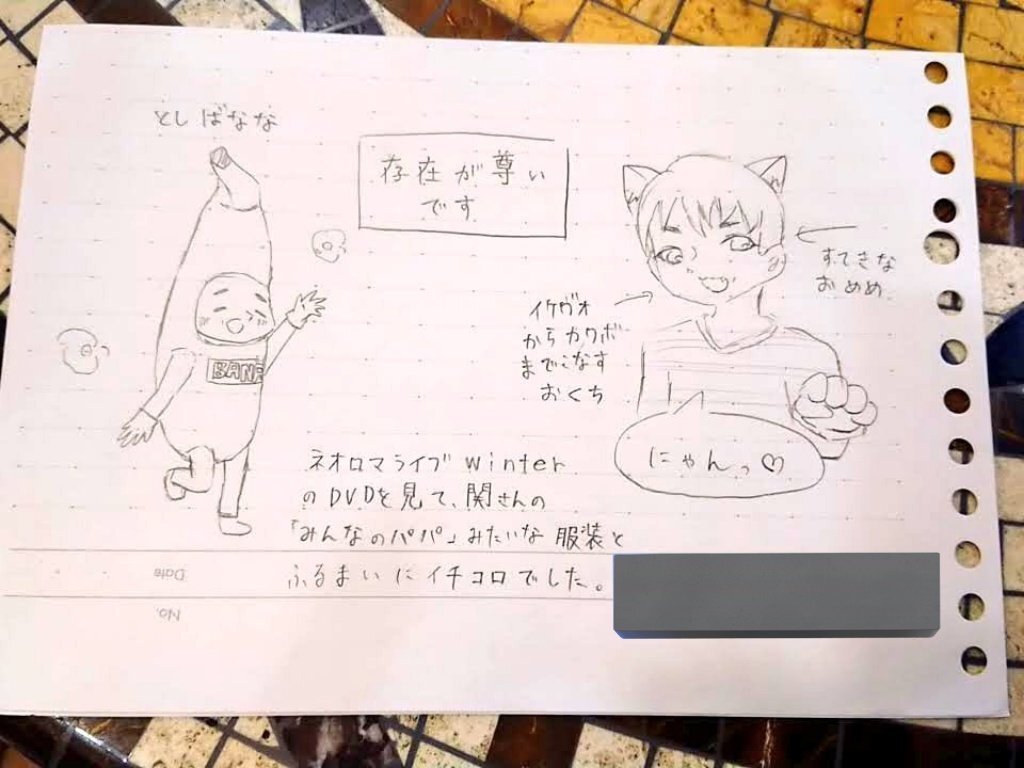 としばなな
存在が尊い
です
すてきな
おめめ
イケヴォ
からカワボ
までこなす
おくち
BANA
にゃんっ♡
ネオロマライブwinter
のDVDを見て、関さんの
「みんなのパパ」みたいな服装と
ふるまいにイチコロでした。
Date
No.